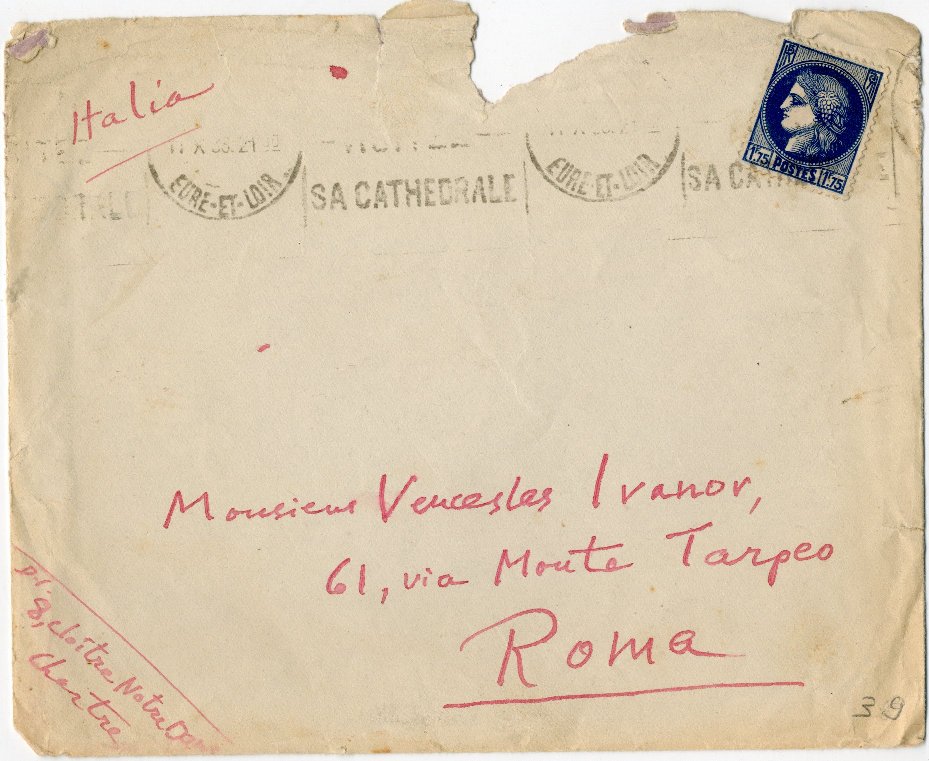 Italia
EURE-ET-LOIR
SA CATHEDRALE
EURE-ET-LOIR
1.75 POSTES 1.75
Monsieur Venceslas Ivanov,
61, via Monte Tarpeo
Roma
8, cloître Notre Dame
Chartres
39